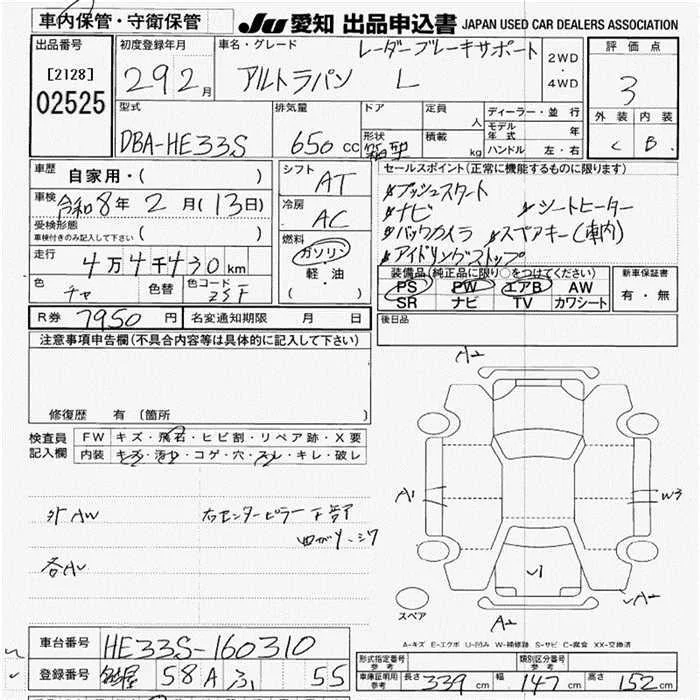 車内保管・守衛保管
JU 愛知 出品申込書 JAPAN USED CAR DEALERS ASSOCIATION
出品番号
[2128]
02525
初度登録年月
29 2月
車名・グレード
レーダーブレーキサポート
アルトラパン L
2WD
・
4WD
評価点
3
外装 内装
C B
型式
DBA-HE33S
排気量
650 cc
ドア
形状
箱型
定員
人
積載
kg
ディーラー・並行
モデル年式 年
ハンドル 左・右
車歴
自家用・( )
車検
令和8年 2月(13日)
受検形態
車検付きのみ記入して下さい ( )
走行
4万4千430km
色
チャ
色替
色コード
ZSF
シフト
AT
冷房
AC
燃料
ガソリン・
軽・油
( )
セールスポイント(正常に機能するものに限ります)
プッシュスタート
ナビ シートヒーター
バックカメラ スペアキー(車内)
アイドリングストップ
装備品(純正品に限り○をつけてください)
PS PW エアB AW
SR ナビ TV カワシート
新車保証書
有・無
R券 7950円
名変通知期限 月 日
後日品
注意事項申告欄(不具合内容等は具体的に記入して下さい)
修復歴 有(箇所 )
検査員
記入欄
FW キズ・飛石・ヒビ割・リペア跡・X要
内装 キズ・汚れ・コゲ・穴・スレ・キレ・破レ
外AW
右センターピラー下部
各AU
A2
A1
W3
A2
A2
スペア
A-キズ E-エクボ U-凹み W-補修跡 S-サビ C-腐食 XX-交換済
車台番号 HE33S-160310
登録番号 名古屋 58A ふ 55
形式指定番号
参考
類別区分番号
参考
車庫証明用
参考
長さ 339cm 幅 147cm 高さ 152cm